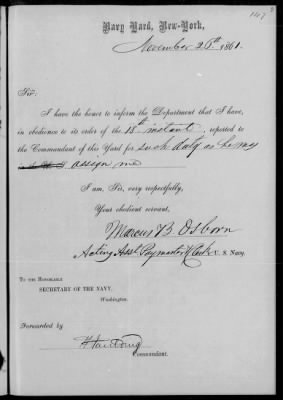 Navy Yard, New-York,
November 26th 1861.
Sir:
I have the honor to inform the Department that I have,
in obedience to its order of the 18th instant, reported to
the Commandant of this Yard for such duty as he may
assign me
I am, Sir, very respectfully,
Your obedient servant,
Marcus B. Osborn
Acting Asst. Paymaster & Clerk U. S. Navy.
To the Honorable
SECRETARY OF THE NAVY,
Washington.
Forwarded by
Commandant.